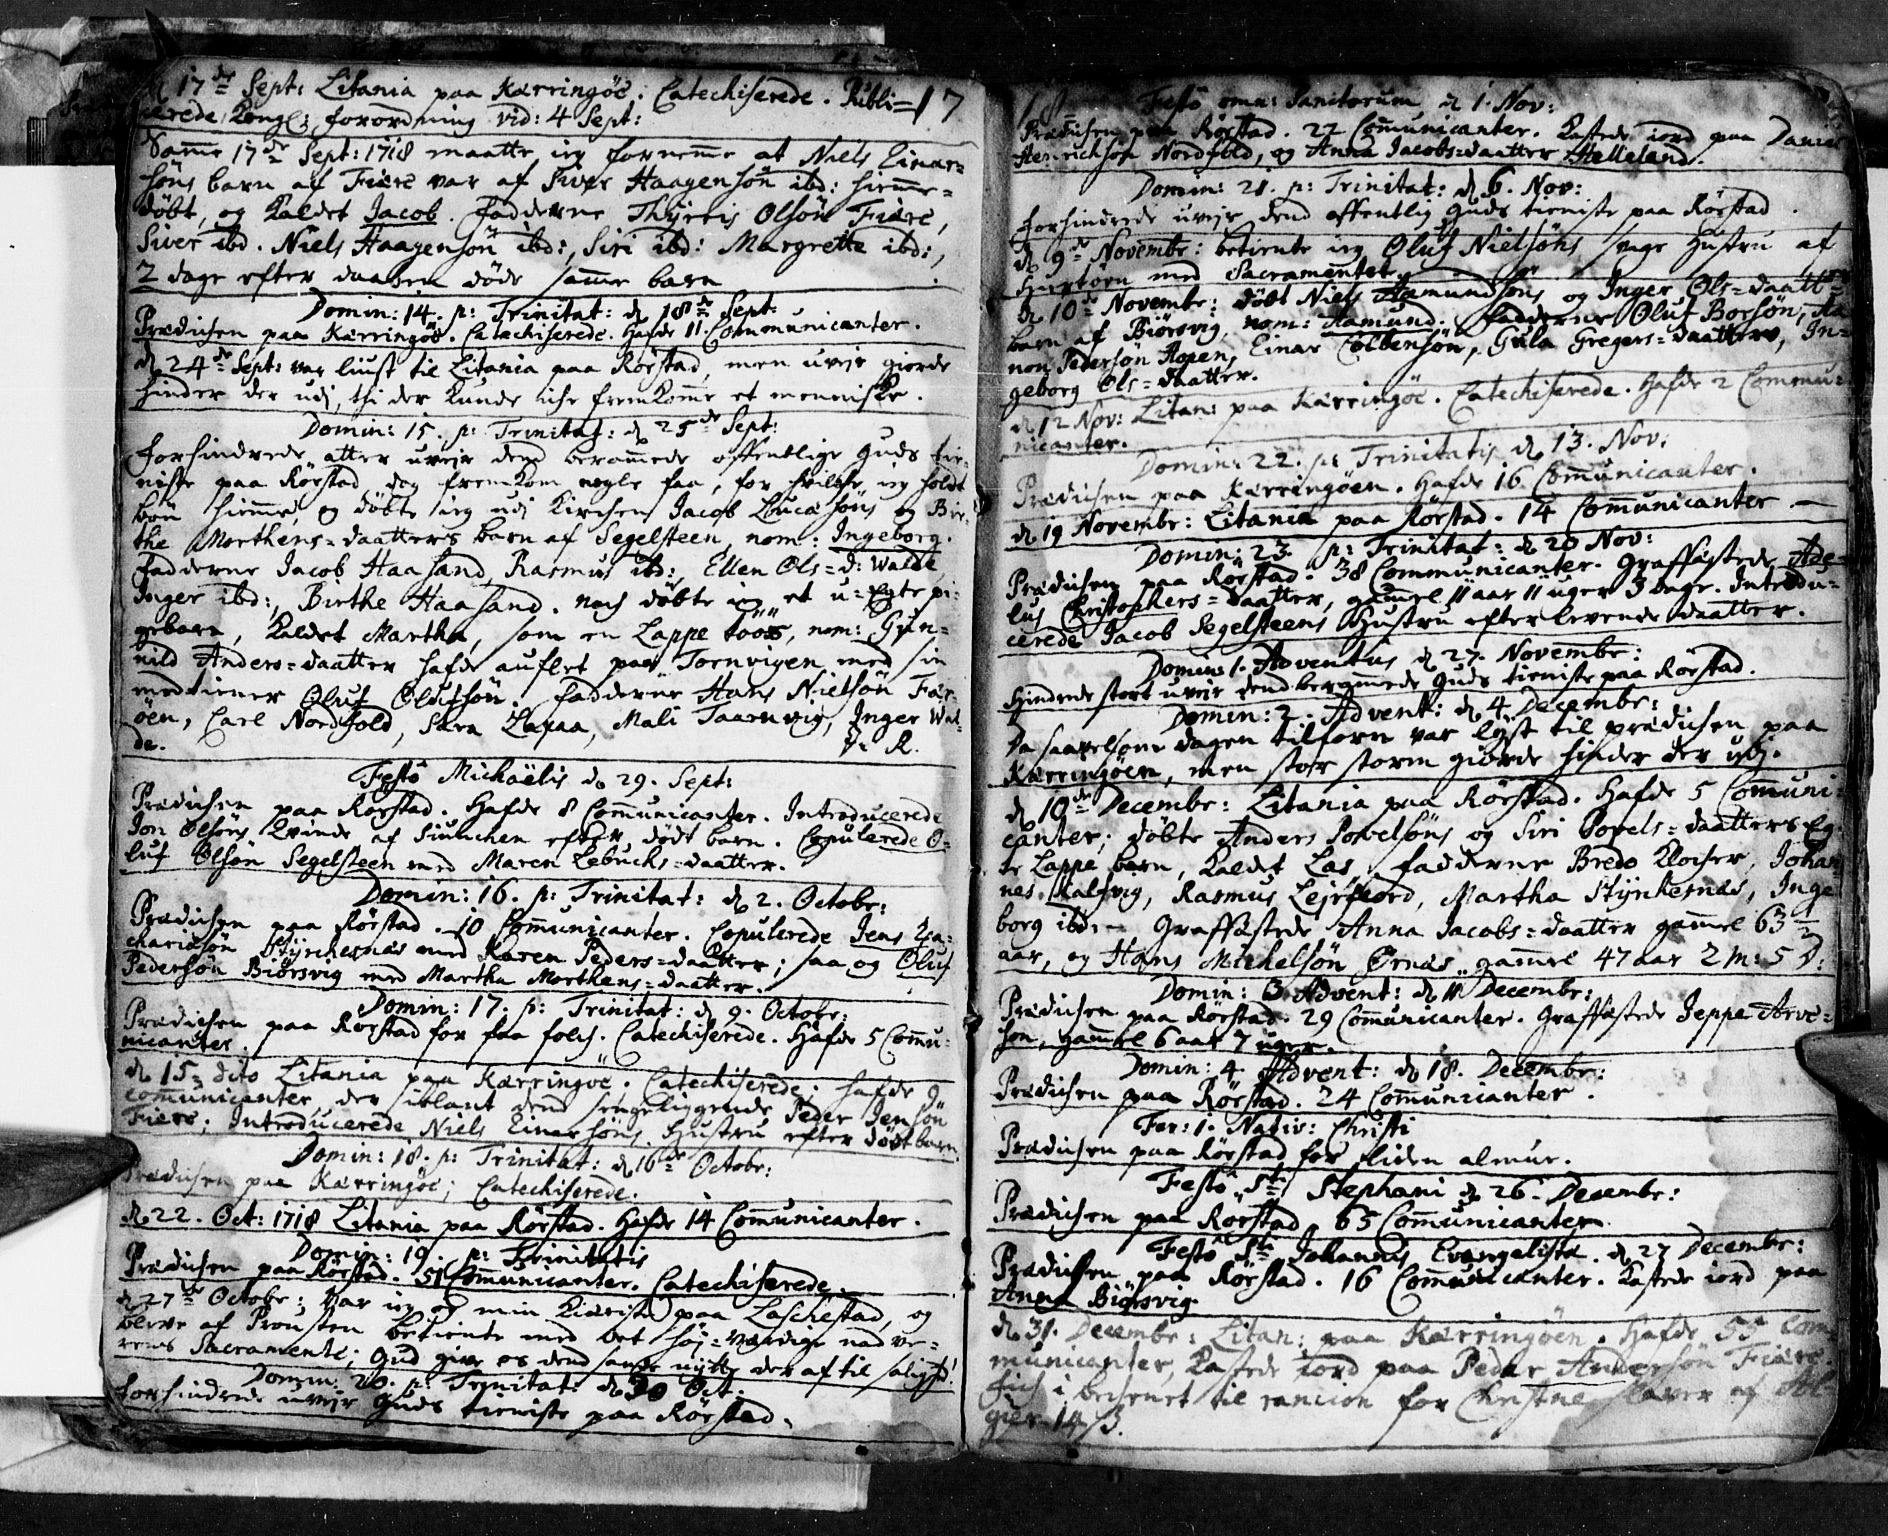 d 17de Sept: Litania paa Kærringöe. Catechiserede. Publi= 17
cerede Kongl: forordning vid: 4 Sept:
Samme 17de Sept: 1718 maatte ieg fornemme at Niels Einar=
söns barn af Fiære var af Siver Haagensön ibd: hiemme=
döbt, og kaldet Jacob. Fadderne Thÿrris Olsön Fiære,
Siver ibd. Niels Haagensön ibd:, Siri ibd: Margrette ibd:,
2 dage efter daaben döde samme barn
Domin: 14. p: Trinitat: d 18de Sept:
Prædichen paa Kærringöe. Catechiserede. Hafde 11. Communicanter.
d 24de Sept: var liust til Litania paa Rörstad, men uvejr giorde
hinder der udj, thi der kunde iche fremkomme et menniske.
Domin: 15. p: Trinitat: d 25de Sept:
Forhindrede atter uvejr dend berammede offentlige Guds tie=
niste paa Rörstad dog fremkom nogle faa, for hvilche ieg holdt
bön hiemme, og döbte ieg udj Kirchen Jacob Lucæsöns og Bir=
the Morthens=daatters barn af Segelsteen, nom: Ingeborg.
Fadderne Jacob Haasand, Rasmus ibd: Ellen Ols=d: Walde,
Inger ibd:, Birthe Haasand. noch döbte ieg et u=Egte pi=
gebarn, kaldet Martha, som en Lappe töös, nom: Gun=
nild Anders=daatter hafde auflet paa Tornvigen med sin
medtiener Oluf Olufsön. Fadderne Hans Nielsön Fær=
öen, Carl Nordfold, Sara Laxaa, Mali Taarnvig, Inger Wal=
de. V: R.
Festö Michaëlis d 29. Sept:
Prædichen paa Rörstad. Hafde 8 Communicanter. Introducerede
Jon Olsöns kvinde af efter dödt barn. Copulerede O=
luf Olsön Segelsteen med Maren Lebuchs=daatter.
Domin: 16. p: Trinitat: d 2. Octobr:
Prædichen paa Rörstad. 10 Communicanter. Copulerede Jens Za=
chariasön Stÿnchesnæs med Karen Peders=daatter; saa og Oluf
Pedersön Biörsvig med Martha Morthens=daatter.
Domin: 17. p: Trinitat: d 9. Octobr:
Prædichen paa Rörstad for faa folch. Catechiserede. Hafde 5 Commu=
nicanter.
d 15. dito Litania paa Kærringöe. Catechiserede; hafde 9
communicanter, der iblant dend sengeliggende Peder Jensön
Fiære; Introducerede Niels Einersöns Hustru efter dödt barn.
Domin: 18. p: Trinitat: d 16de Octobr:
Prædichen paa Kærringöe; Catechiserede.
d 22. Oct: 1718 Litania paa Rörstad. Hafde 14 Communicanter.
Domin: 19. p: Trinitatis
Prædichen paa Rörstad. 51 Communicanter. Catechiserede.
d 27de Octobr: var ieg og min Kiæriste paa Laschestad, og
bleve af Prousten betiente med det höj=værdige nadve=
rens Sacramente; Gud give os dend sande nÿtte der af til salighed!
Domin: 20. p: Trinitat: d 30 Oct:
Forhindrede uvejr Guds tieniste paa Rörstad.
Festö omn: Sanctorum d 1. Nov:
Prædichen paa Rörstad. 22 Communicanter. Kastede iord paa Daniel
Henrichsön Nordfold, og Anna Jacobs=daatter Helleland.
Domin: 21. p: Trinitat: d 6. Nov:
Forhindrede uvejr dend offentlig Guds tieniste paa Rörstad.
d 9de Novembr: betiente ieg Oluf Nielsöns svage Hustru af
med Sacramentet.
d 10de Novembr: döbt Niels Aamundsöns og Inger Ols=daatt=
barn af Biörsvig, nom: Aamund. Fadderne Oluf Borsön, Aa=
non Pedersön Aopen, Einar Colbensön, Gula Gregers=daatter, In=
geborg Ols=daatter.
d 12 Nov: Litan: paa Kærringöe. Catechiserede. Hafde 2 Commu=
nicanter.
Domin: 22. p: Trinitatis d 13. Nov:
Prædichen paa Kærringöen. Hafde 16 Communicanter.
d 19 Novembr: Litania paa Rörstad. 14 Communicanter
Domin: 23. p: Trinitat: d 20 Nov:
Prædichen paa Rörstad. 38 Communicanter. Graffæstede Ade=
lus Christophers=daatter, gammel 11 aar 11 uger 3 dage. Introdu=
cerede Jacob Segelsteens Hustru efter levende daatter.
Domin: 1. Adventus d 27. Novembr:
Hindrede stort uvejr dend berammede Guds tieniste paa Rörstad.
Domin: 2. Advent: d 4. Decembr:
Da saavelsom dagen tilforn var lÿst til prædichen paa
Kærringöen, men stor storm giorde hinder der udj.
d 10de Decembr: Litania paa Rörstad. Hafde 5 Communi=
canter; döbte Anders Povelsöns og Siri Povels=daatters Eg=
te Lappe barn, kaldet Las, fadderne Bredo Klocher, Johan=
nes Kalsvig, Rasmus Lejrfiord, Martha Stÿnkesnæs, Inge=
borg ibd: – Graffæstede Anna Jacobs=daatter gammel 63
aar, og Hans Michelsön Örnæs gammel 47 aar 2 M: 5 D:
Domin: 3. Advent: d 11 Decembr:
Prædichen paa Rörstad. 29 Communicanter. Graffæstede Jeppe Arve=
sön, gammel 6 aar 7 uger.
Domin: 4. Advent: d 18. Decembr:
Prædichen paa Rörstad. 24 Communicanter.
Fer: 1. Nativ: Christi
Prædichen paa Rörstad for liden almue.
Festö Sti Stephani d 26. Decembr:
Prædichen paa Rörstad 65 Communicanter.
Festö Sti Johannis Evangelistæ. d 27 Decembr:
Prædichen paa Rörstad. 16 Communicanter. Kastede iord paa
Anna Biörsvig
d 31. Decembr: Litan: paa Kærringöen. Hafde 55 Com=
municanter, Kastede Iord paa Peder Andersön Fiære.
Fich i becchenet til rancion for Christne slaver af Al=
gier 14 ß.